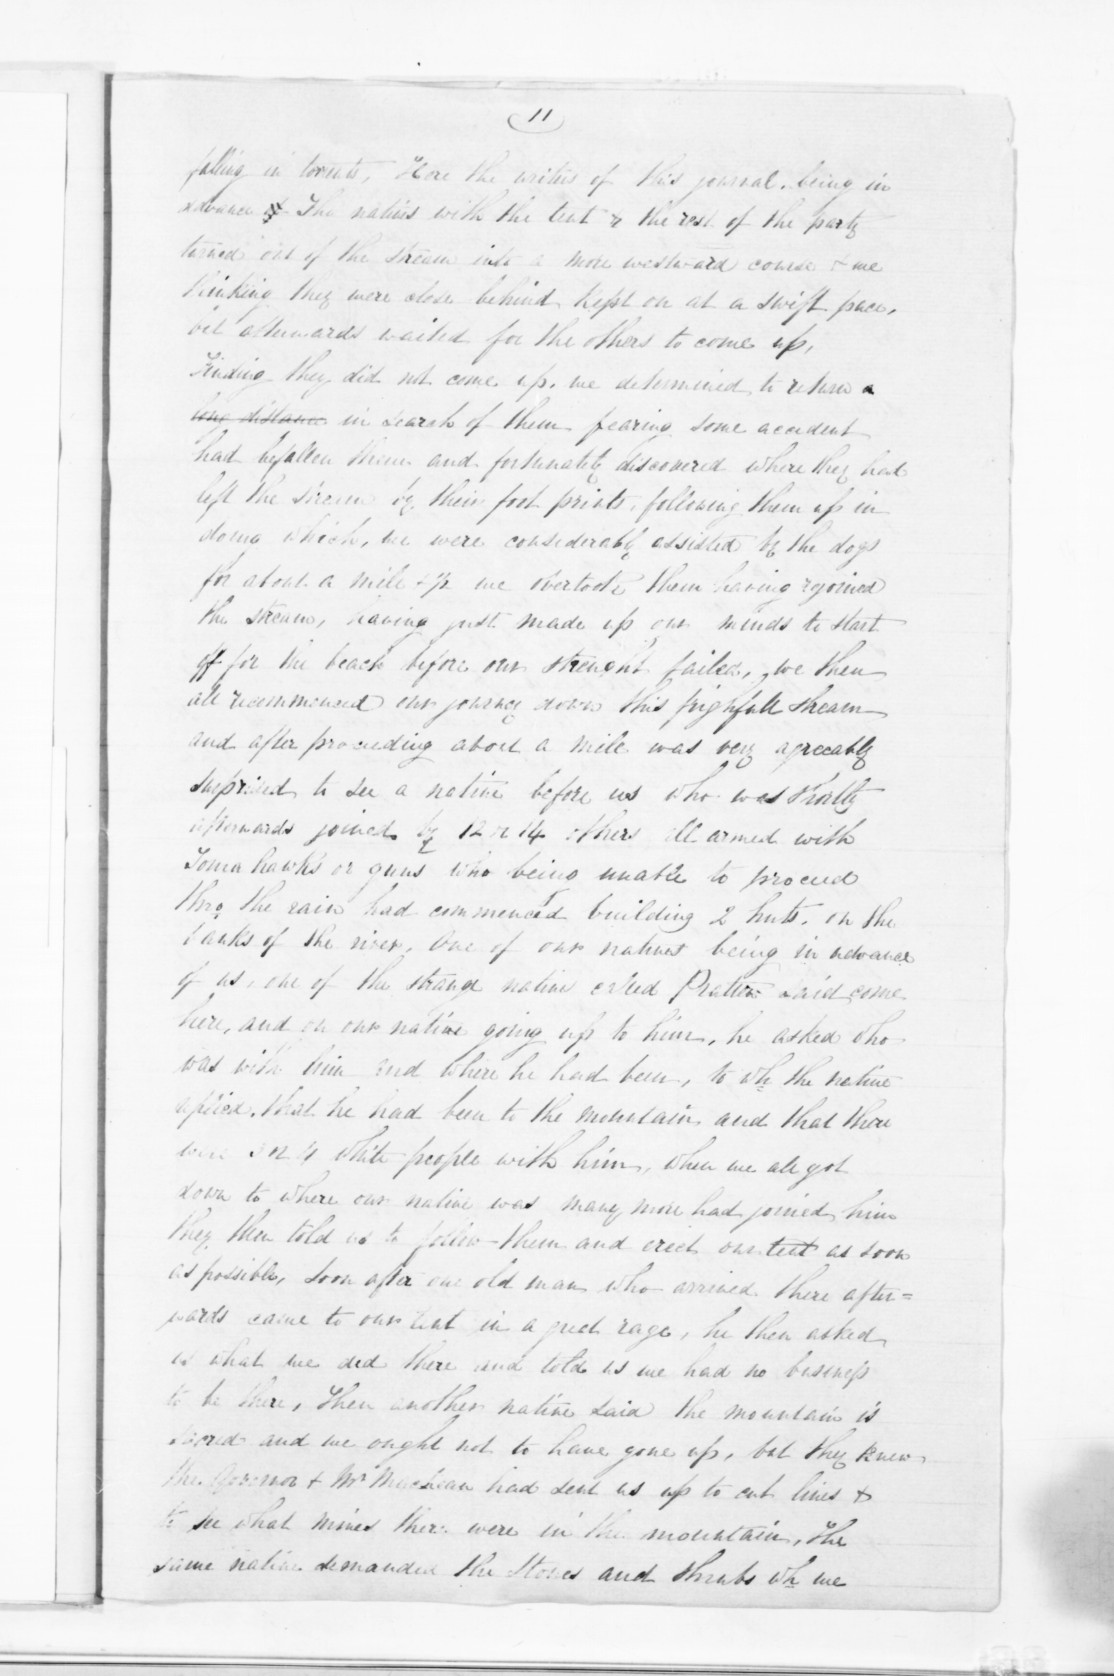 11
falling in torrents, Here the writers of this journal, being in
advance of The natives with the tent & the rest of the party
turned out of the stream into a more westward course & we
thinking they were close behind kept on at a swift pace,
but afterwards waited for the others to come up,
Finding they did not come up, we determined to return a
long distance in search of them fearing some accident
had befallen them and fortunately discovered where they had
left the stream by their foot prints, following them up in
doing which, we were considerably assisted by the dogs
for about a mile & ½ we overtook them having rejoined
the stream, having just made up our minds to start
off for the beach before our strenght failed, we then
all recommenced our journey down this frightfull stream
and after proceeding about a mile was very agreeably
surprised to see a native before us who was shortly
afterwards joined by 12 or 14 others all armed with
Tomahawks or guns who being unable to proceed
thro the rain had commenced building 2 huts, on the
banks of the river, One of our natives being in advance
of us, one of the strange native called said come
here, and on our native going up to him, he asked who
was with him and where he had been, to wh the native
replied, that he had been to the mountain and that there
were 3 or 4 white people with him, when we all got
down to where our native was many more had joined him
they then told us to follow them and erect our tent as soon
as possible, Soon after one old man who arrived there after=
wards came to our tent in a great rage, he then asked
us what we did there and told us we had no business
to be there, Then another native said the mountain is
sacred and we ought not to have gone up, but they knew
the Governor & Mr MacLean had sent us up to cut lines &
to see what mines there were in the mountain, The
same native demanded the Stones and shrubs wh we